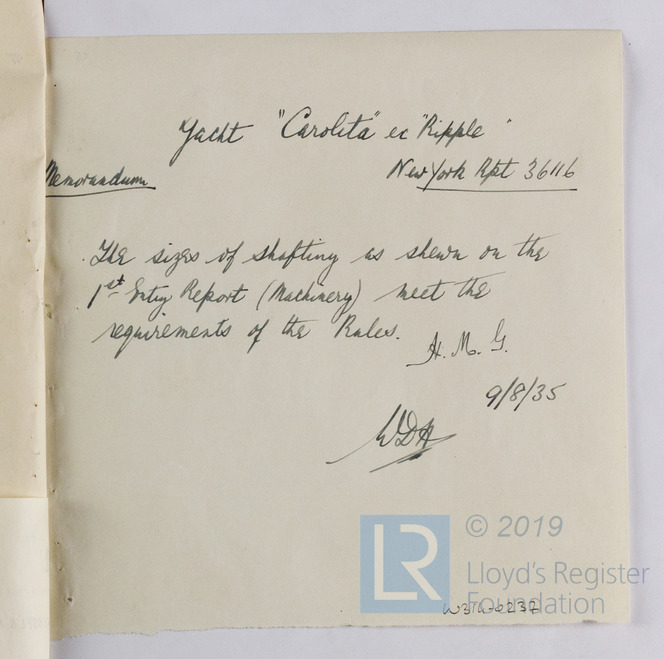 Yacht "Carolita" ex "Ripple"
Memorandum
New York Rpt 36116
The sizes of shafting as shewn on the
1st Entry Report (Machinery) meet the
requirements of the Rules.
H. M. G.
9/8/35
WDH
LR
© 2019
Lloyd's Register
Foundation